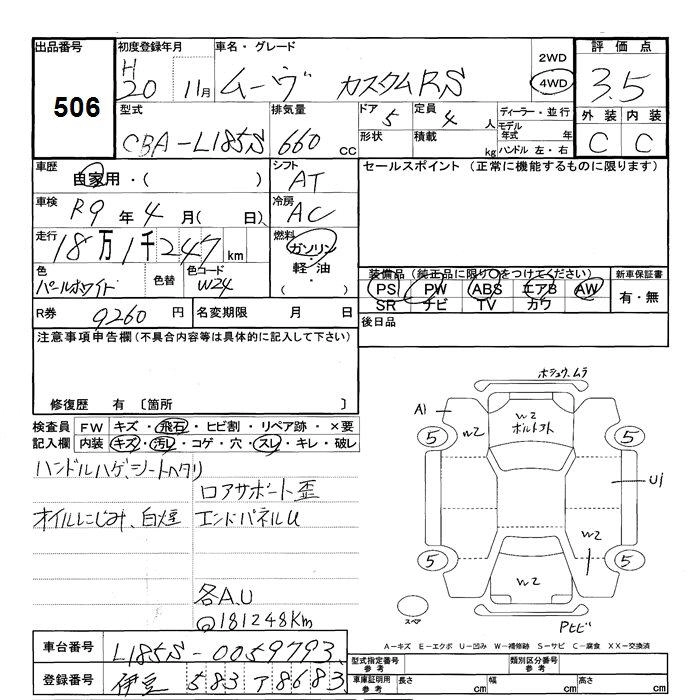 出品番号
506
初度登録年月
H
20 11月
車名・グレード
ムーヴ カスタムRS
2WD
4WD
評価点
3.5
外装 内装
C C
型式
CBA-L185S
排気量
660 cc
ドア
5
形状
定員
4 人
積載 kg
ディーラー・並行
モデル年式 年
ハンドル 左・右
車歴
自家用・( )
シフト
AT
車検
R9年4月( 日)
冷房
AC
走行
18万1千247km
燃料
ガソリン・軽油・( )
色
パールホワイト
色替
色コード
W24
R券 9260 円
名変期限 月 日
セールスポイント (正常に機能するものに限ります)
装備品 (純正品に限り○をつけてください)
PS PW ABS エアB AW
SR ナビ TV カワ
新車保証書
有・無
後日品
注意事項申告欄 (不具合内容等は具体的に記入して下さい)
修復歴 有 〔箇所 〕
検査員記入欄
FW キズ・飛石・ヒビ割・リペア跡・×要
内装 キズ・汚レ・コゲ・穴・スレ・キレ・破レ
ハンドルハゲ、シートヘタリ
ロアサポート歪
オイルにじみ、白煙
エンドパネルU
各A.U
◎181248Km
ホシュウ.ムラ
A1
W2
W2
ボルト外
5
5
U1
W2
W2
5
5
スペア
Pヒビ
A-キズ E-エクボ U-凹み W-補修跡 S-サビ C-腐食 XX-交換済
車台番号
L185S-0059793
登録番号
伊豆 583 ア 8683
型式指定番号
参考
類別区分番号
参考
車庫証明用
参考
長さ cm
幅 cm
高さ cm